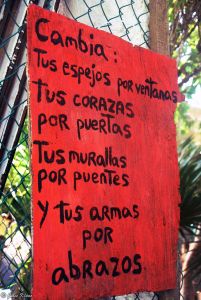 Cambia:
Tus espejos por ventanas
tus CORAZAS
POR PUERTAS
Tus murallas
por puentes
Y tus ARMAS
POR
abrazos.